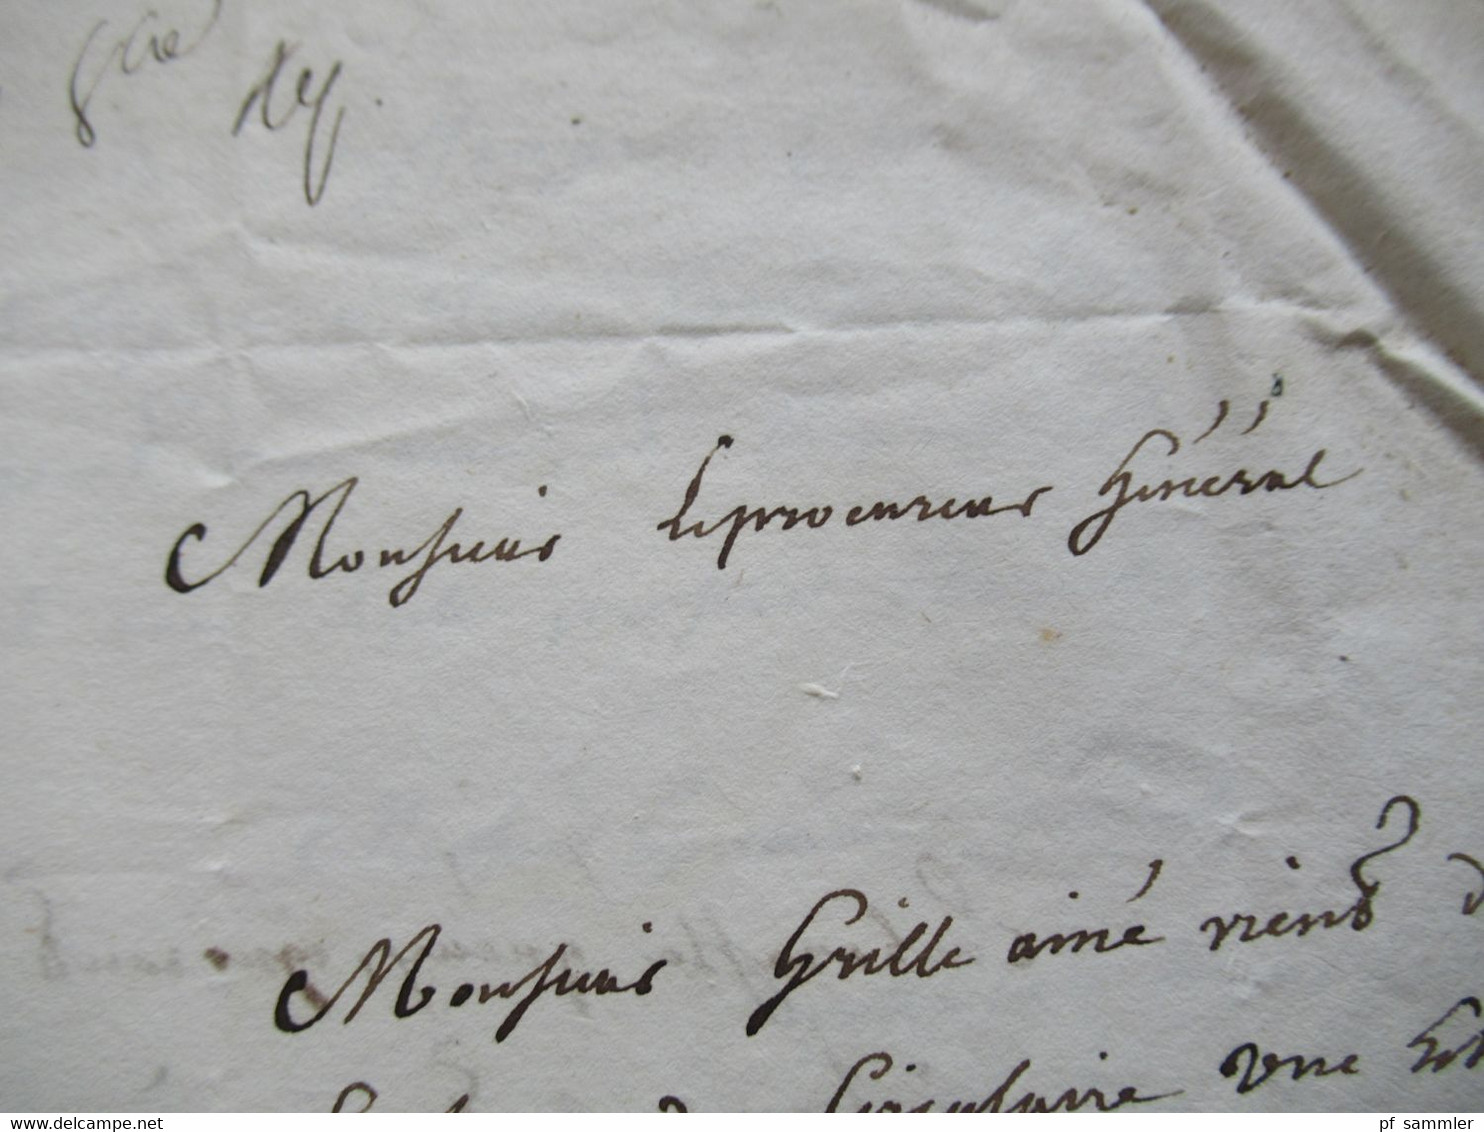 8bre
Monsieur Le procureur Général
Monsieur Grille ainé vient d
Circulaire une
delcampe.net
pf_sammler